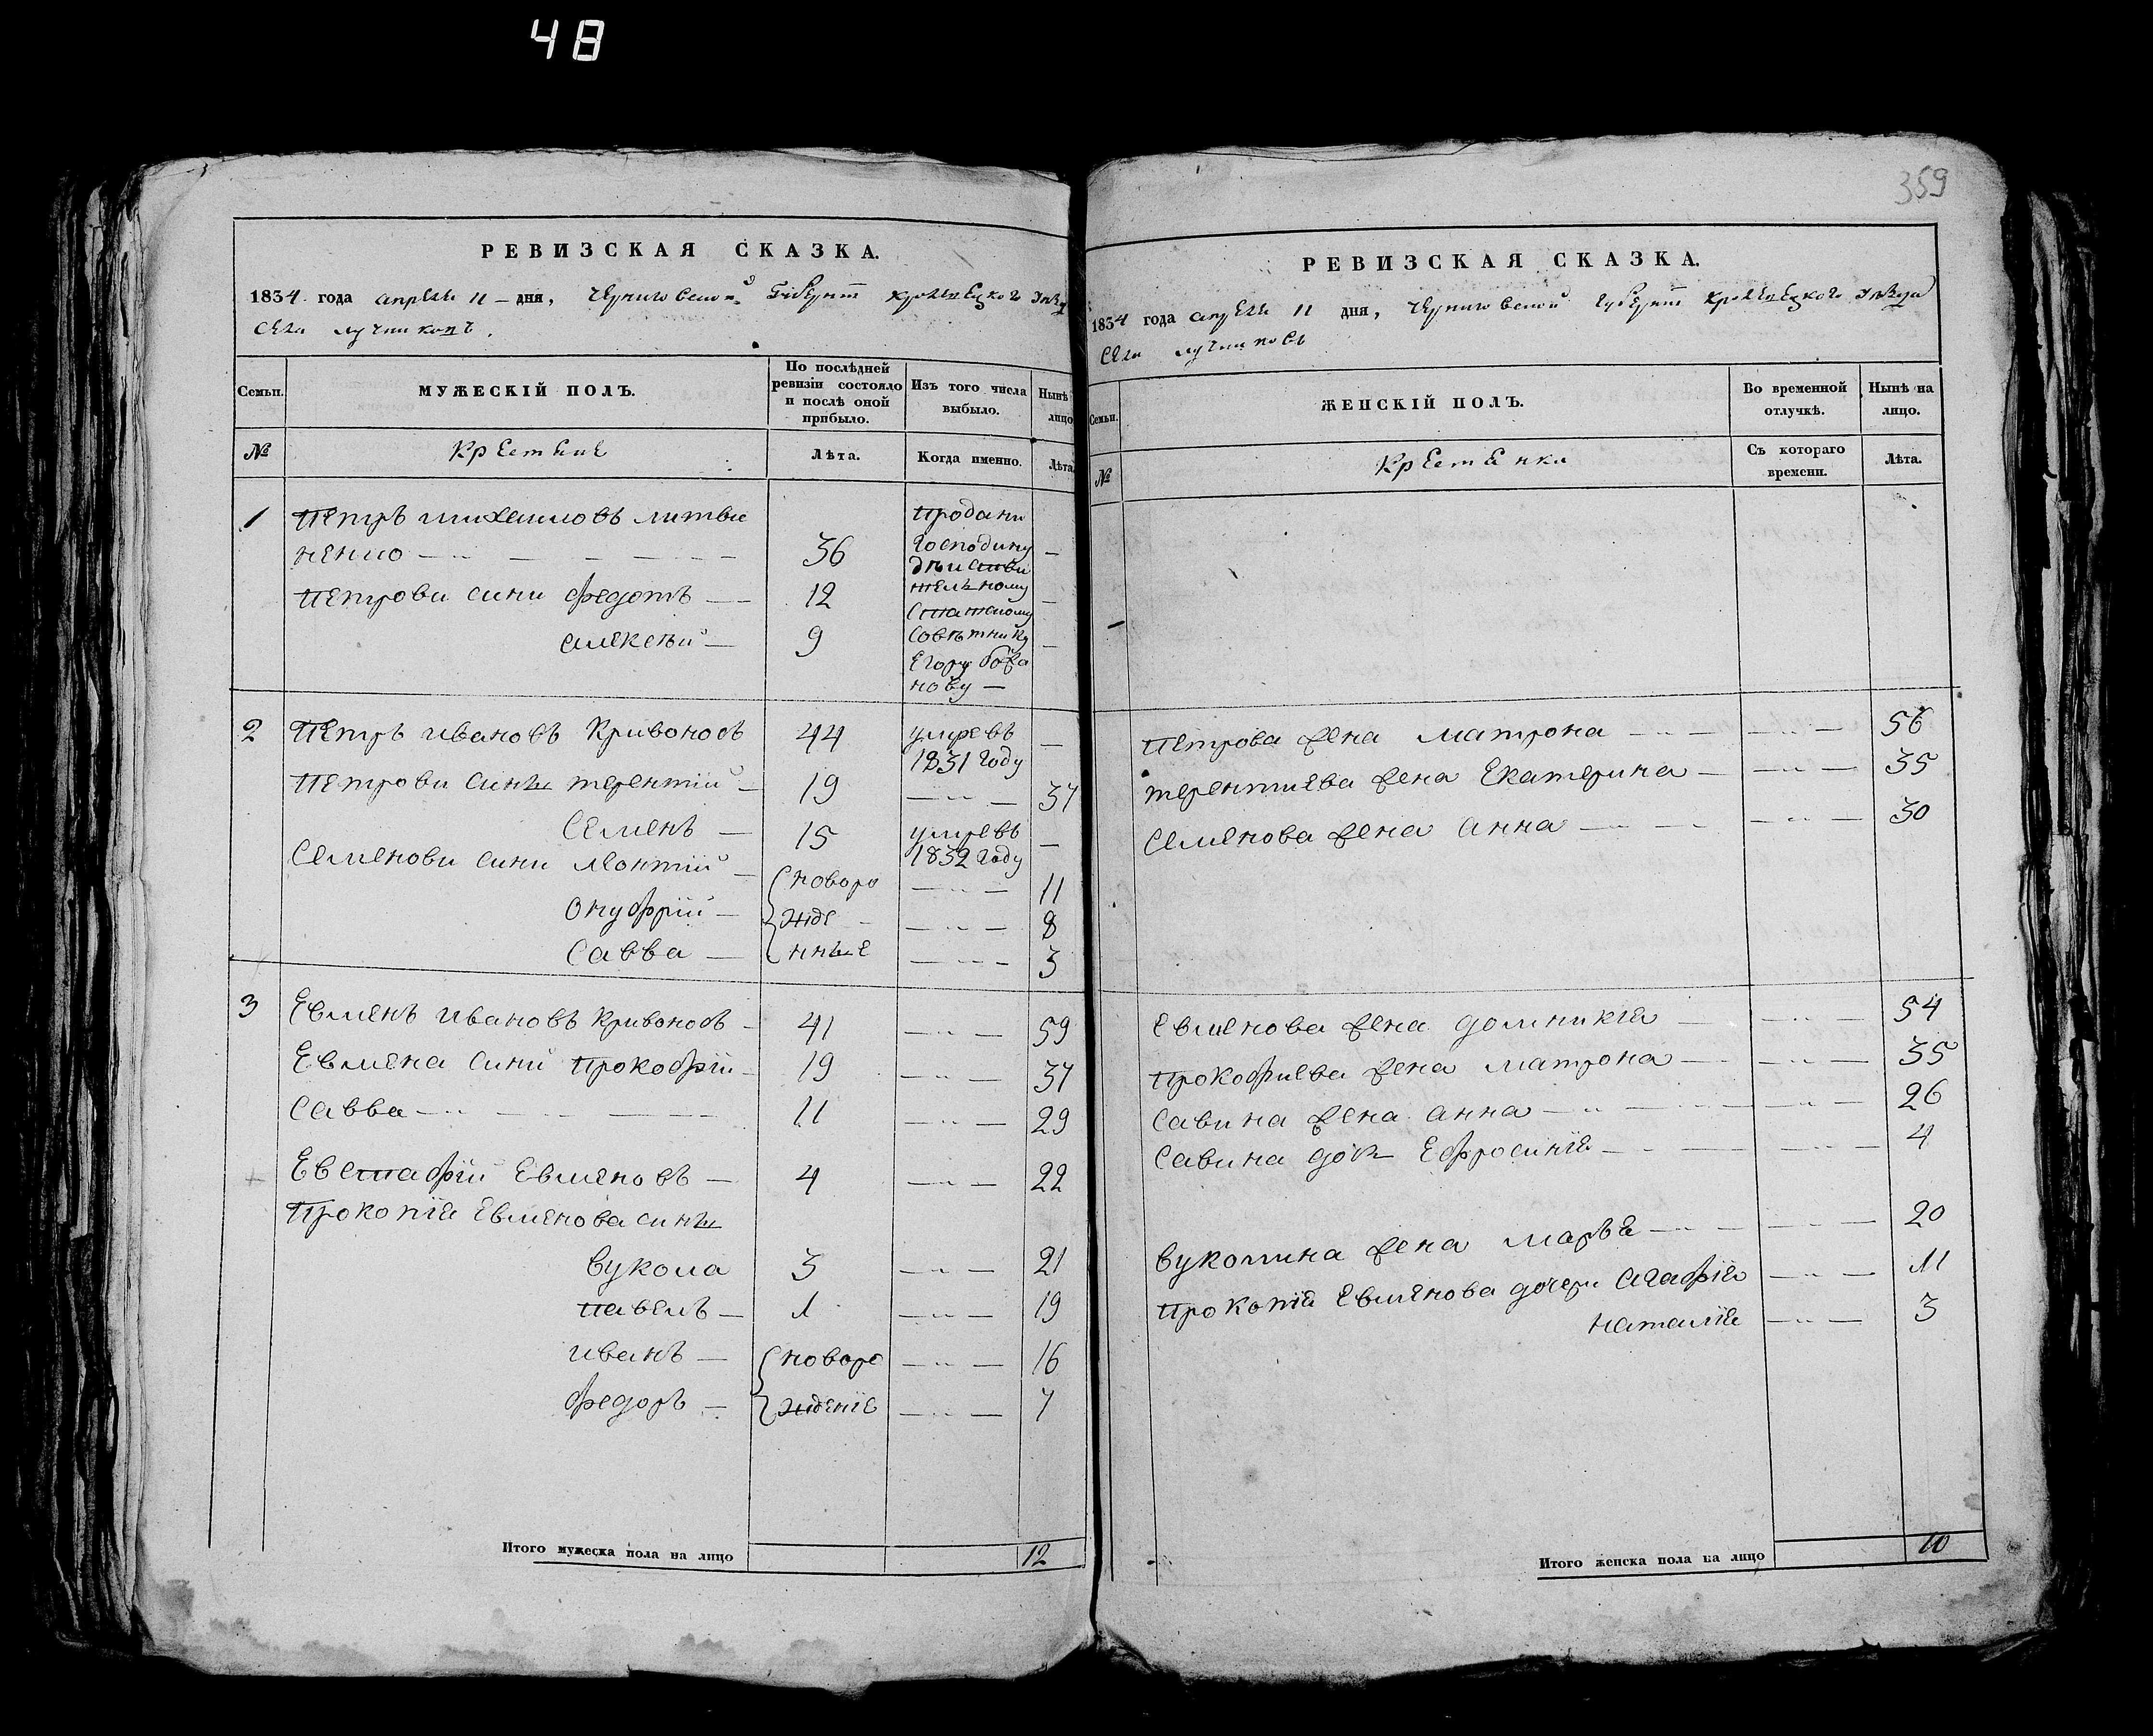 48
РЕВИЗСКАЯ СКАЗКА.
1834 года апреля 11 – дня, Черниговской Губернии Кролевецкого Уезда
Села Лучниковъ.
Семьи.
МУЖЕСКІЙ ПОЛЪ.
По послѣдней ревизіи состояло и послѣ оной прибыло.
Изъ того числа выбыло.
Нынѣ лицо
№
Крестяне
Лѣта.
Когда именно.
Лѣта.
1 Петръ Михайловъ Литви
ненко 36 —
Петрови сини Федотъ — 12 —
Алексѣй — 9 —
продани
Господину
дѣйстви
тельному
Статскому
Совѣтнику
Егору
нову —
2 Петръ Ивановъ Кривоносъ 44 умре въ 1831 году —
Петрови сины Терентій — 19 — 37
Семенъ — 15 умре въ 1832 году —
Семенови сини Леонтій — новоро — 11
Онуфрій — жде — 8
Савва — нные — 3
3 Евменъ Ивановъ Кривоносъ — 41 — 59
Евмена сини Прокофій — 19 — 37
Савва — 11 — 29
Евстафій Евменовъ — 4 — 22
Прокопія Евменова сины
Вукола 3 — 21
Павелъ — 1 — 19
Иванъ — новоро — 16
Федоръ — жденіе — 7
Итого мужеска пола на лицо 12
359
РЕВИЗСКАЯ СКАЗКА.
1834 года апреля 11 дня, Черниговской Губернии Кролевецкого Уезда
Села Лучниковъ
Семьи.
ЖЕНСКІЙ ПОЛЪ.
Во временной отлучкѣ.
Нынѣ на лицо.
№
Крестянки
Съ котораго времени.
Лѣта.
Петрова жена Матрона — 56
Терентиева жена Екатерина — 35
Семенова жена Анна — 30
Евменова жена Домникія — 54
Прокофиева жена Матрона — 35
Савина жена Анна — 26
Савина дочь Ефросинія — 4
Вуколина жена Марья — 20
Прокопія Евменова дочери Агафія — 11
Наталія — 3
Итого женска пола на лицо 10